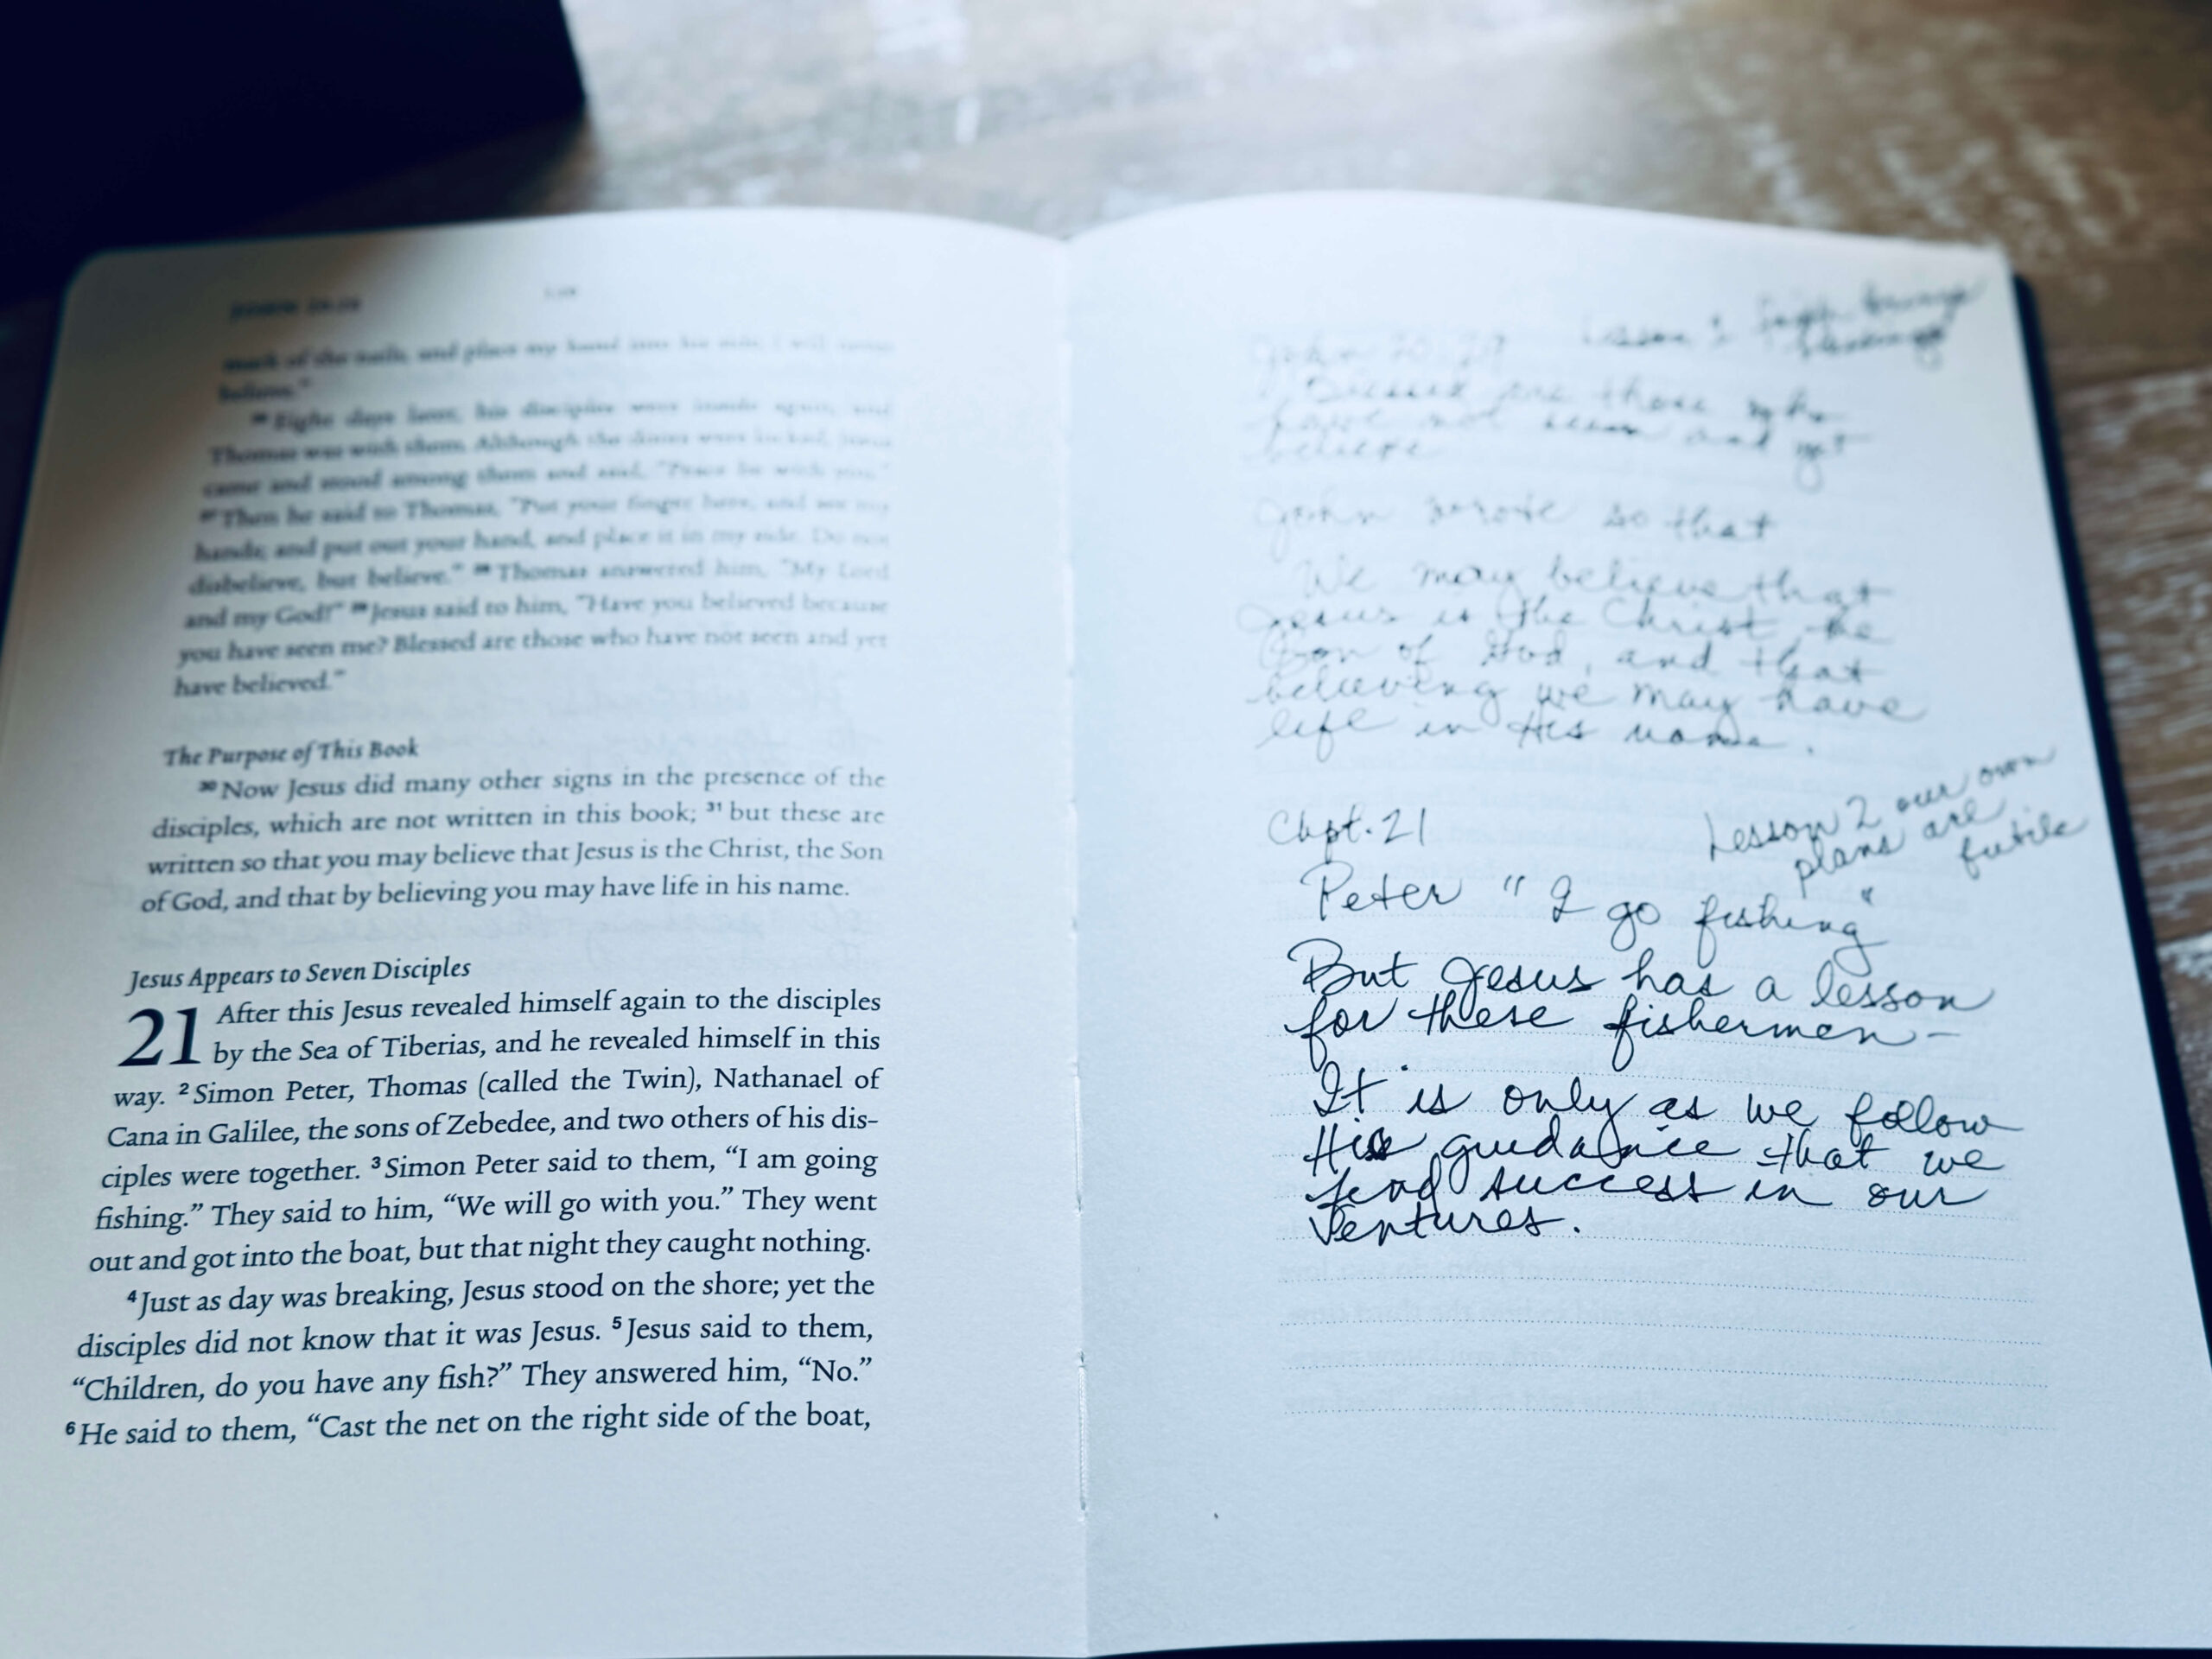 mark of the nails, and place my hand into his side, I will never
believe."
26 Eight days later, his disciples were inside again, and
Thomas was with them. Although the doors were locked, Jesus
came and stood among them and said, "Peace be with you."
27 Then he said to Thomas, "Put your finger here, and see my
hands; and put out your hand, and place it in my side. Do not
disbelieve, but believe." 28 Thomas answered him, "My Lord
and my God!" 29 Jesus said to him, "Have you believed because
you have seen me? Blessed are those who have not seen and yet
have believed."
The Purpose of This Book
30 Now Jesus did many other signs in the presence of the
disciples, which are not written in this book; 31 but these are
written so that you may believe that Jesus is the Christ, the Son
of God, and that by believing you may have life in his name.
Jesus Appears to Seven Disciples
21 After this Jesus revealed himself again to the disciples
by the Sea of Tiberias, and he revealed himself in this
way. 2 Simon Peter, Thomas (called the Twin), Nathanael of
Cana in Galilee, the sons of Zebedee, and two others of his dis-
ciples were together. 3 Simon Peter said to them, “I am going
fishing.” They said to him, “We will go with you.” They went
out and got into the boat, but that night they caught nothing.
4 Just as day was breaking, Jesus stood on the shore; yet the
disciples did not know that it was Jesus. 5 Jesus said to them,
“Children, do you have any fish?” They answered him, “No.”
6 He said to them, “Cast the net on the right side of the boat,
John 20:29
Lesson 1 faith brings
blessings
Blessed are those who
have not seen and yet
believe
John wrote so that
We may believe that
Jesus is the Christ, the
Son of God, and that
believing we may have
life in His name.
Chpt. 21
Lesson 2 our own
plans are
futile
Peter "I go fishing"
But Jesus has a lesson
for these fishermen -
It is only as we follow
His guidance that we
find success in our
ventures.